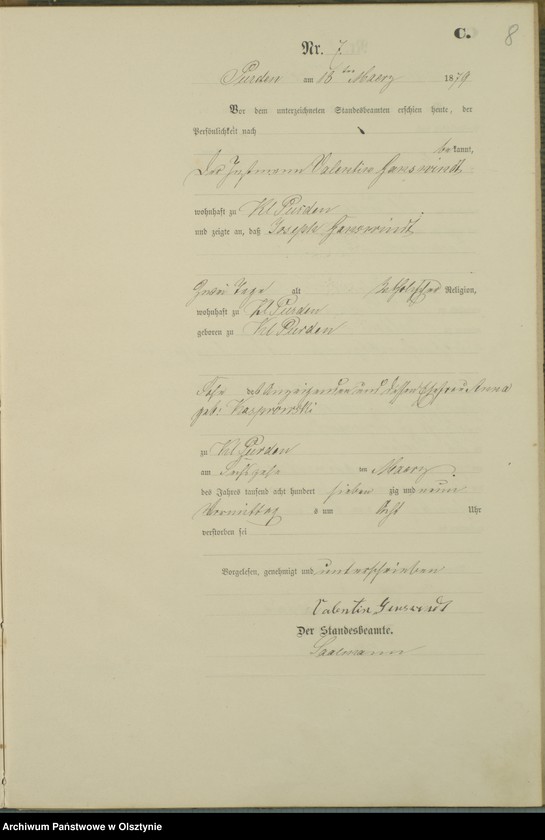 C.
8
Nr. 7.
Purden am 16ten Maerz 1879.
Vor dem unterzeichneten Standesbeamten erschien heute, der
Persönlichkeit nach
be kannt,
Der Instmann Valentin
wohnhaft zu Kl Purden
und zeigte an, daß Joseph
Zwei Tage alt katholischer Religion,
wohnhaft zu Kl Purden
geboren zu Kl Purden
Sohn des Anzeigenden und dessen Ehefrau Anna
geb: Kasprowski
zu Kl Purden
am im Maerz
des Jahres tausend acht hundert sieben zig und neun
Vormittag s um Acht Uhr
verstorben sei
Vorgelesen, genehmigt und unterschrieben
Valentin
Der Standesbeamte.
Saalmann
Archiwum Państwowe w Olsztynie